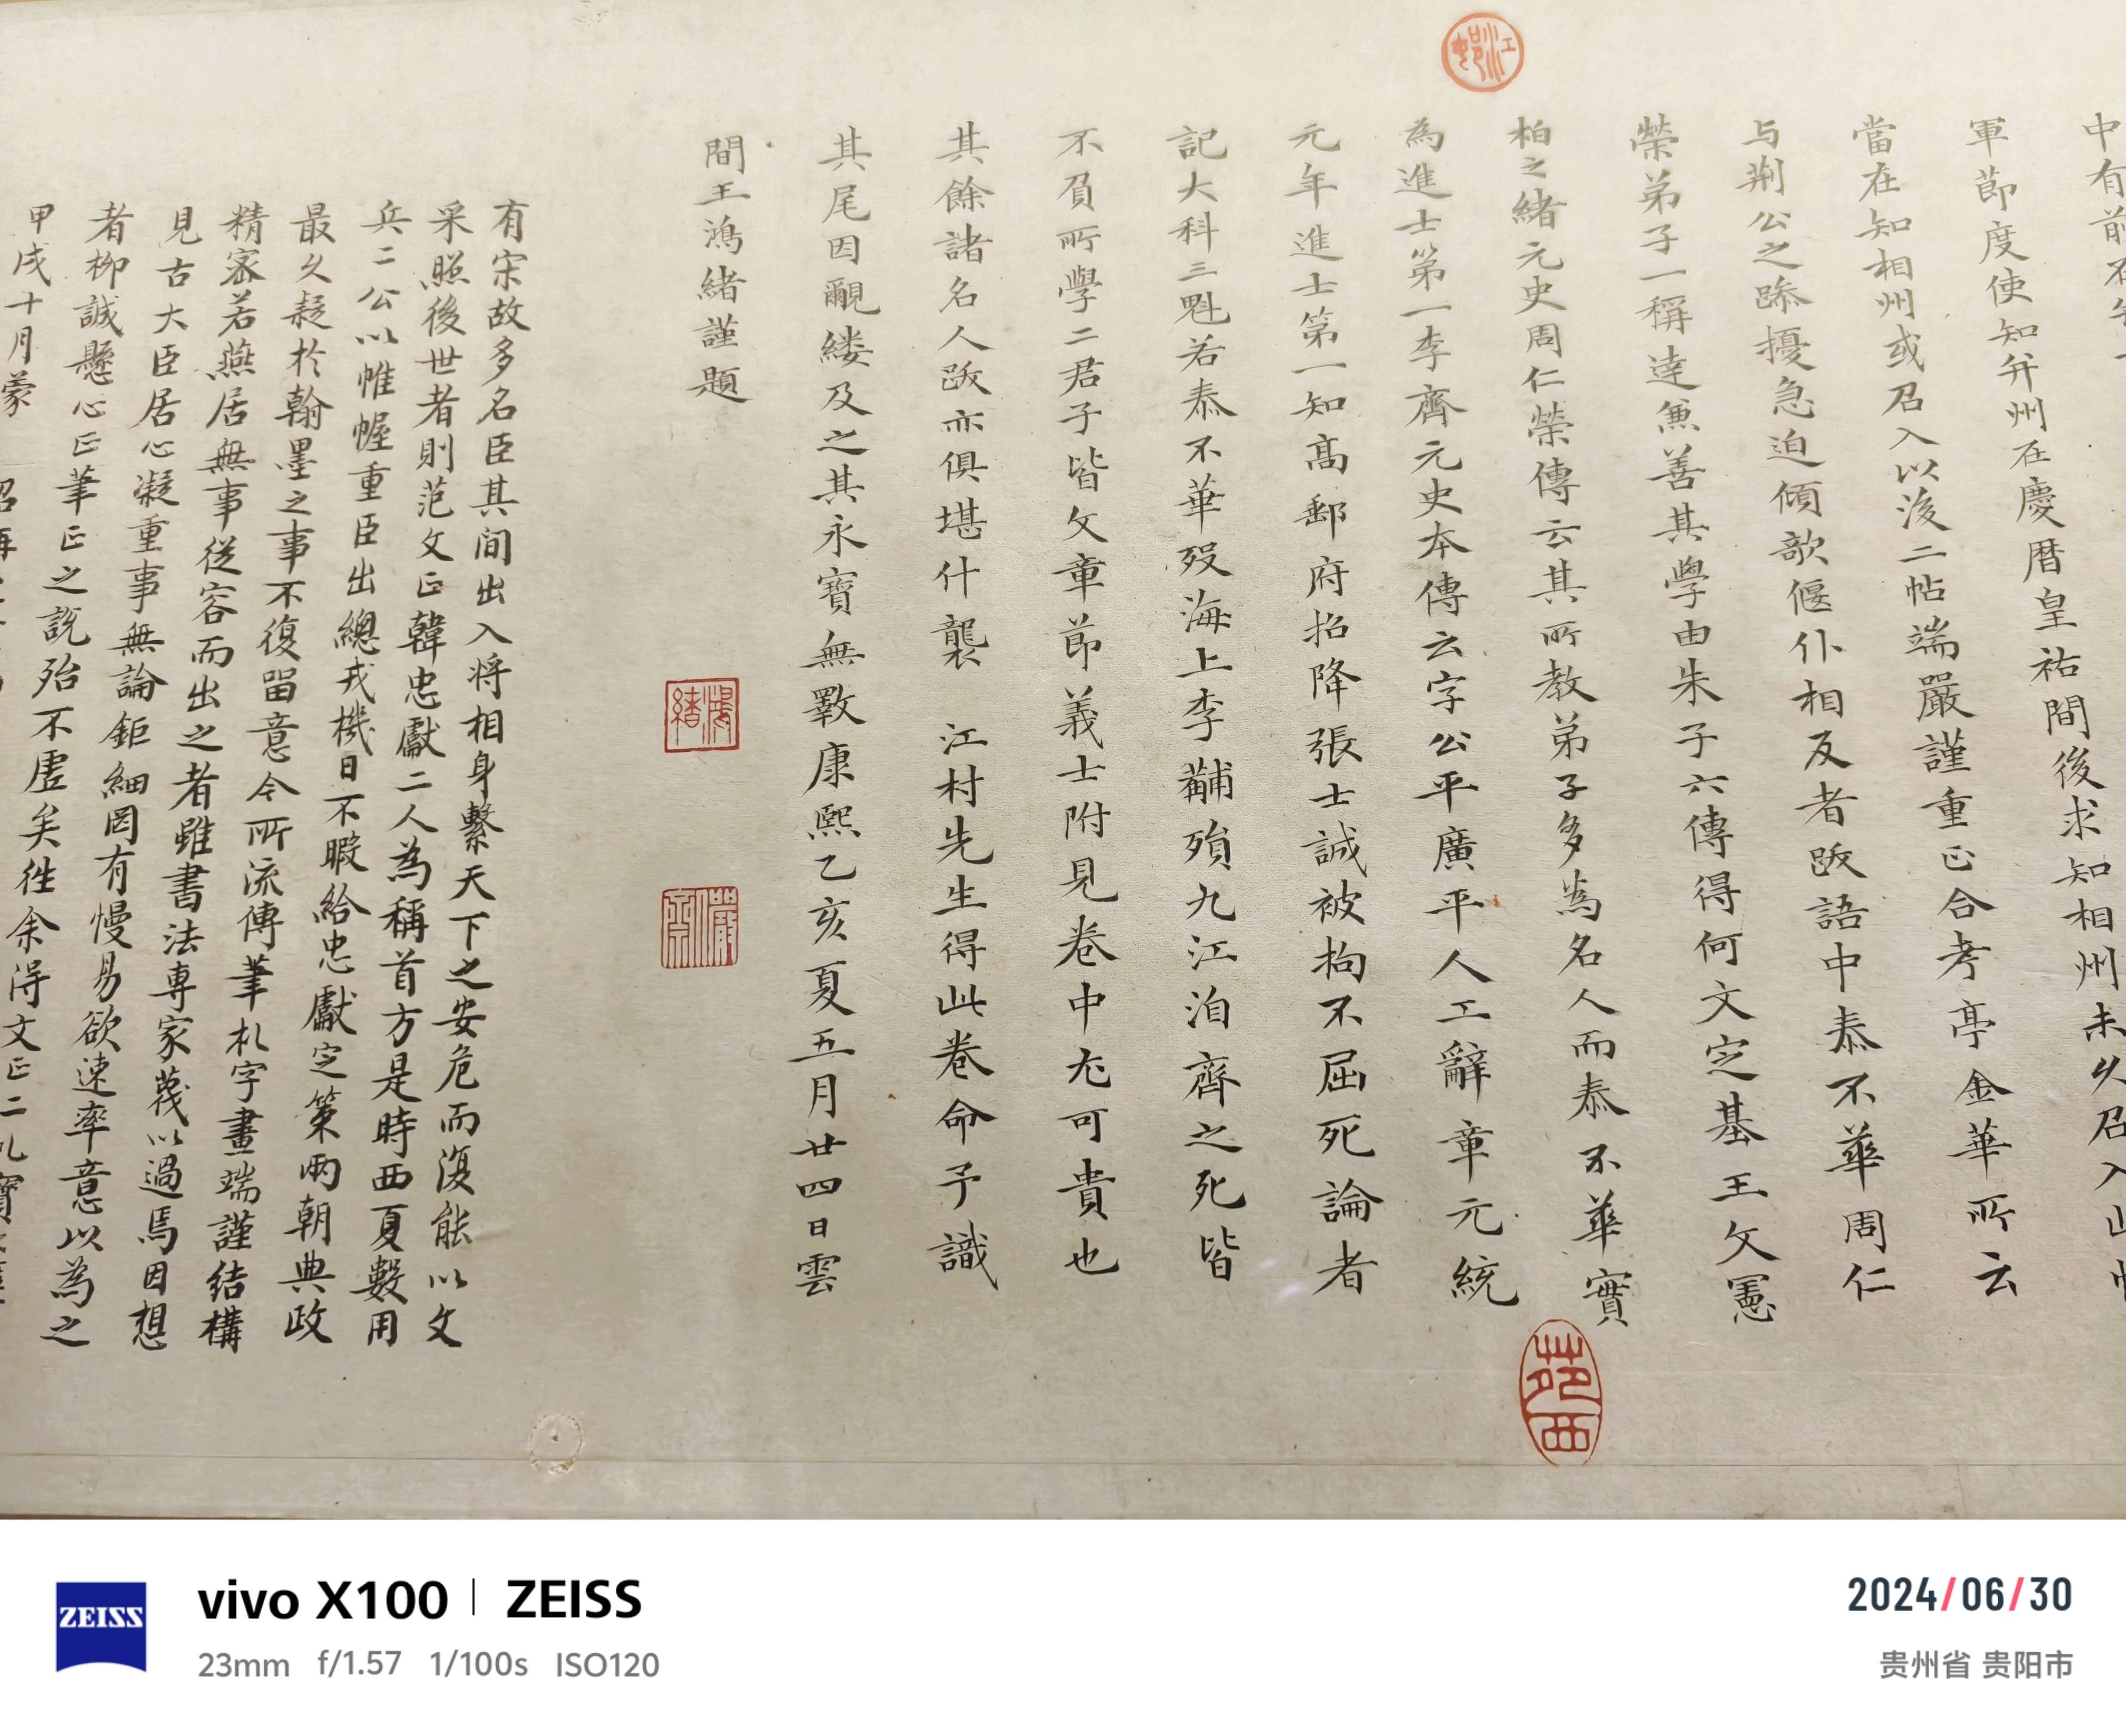 中有前
軍節度使知幷州在慶曆皇祐間後求知相州未久召入
當在知相州或召入以後二帖端嚴謹重正合考亭金華所云
与荆公之𨇾擾急迫傾欹偃仆相反者跋語中泰不華周仁
榮弟子一稱達兼善其學由朱子六傳得何文定基王文憲
柏之緒元史周仁榮傳云其所教弟子多為名人而泰不華實
為進士第一李齊元史本傳云字公平廣平人工辭章元統
元年進士第一知高郵府招降張士誠被拘不屈死論者
記大科三魁若泰不華歿海上李黼殞九江洎齊之死皆
不負所學二君子皆文章節義士附見卷中尤可貴也
其餘諸名人跋亦俱堪什襲 江村先生得此卷命予識
其尾因覼縷及之其永寶無斁康熙乙亥夏五月廿四日雲
間王鴻緒謹題
有宋故多名臣其間出入將相身繫天下之安危而復能以文
采照後世者則范文正韓忠獻二人為稱首方是時西夏數用
兵二公以帷幄重臣出總戎機日不暇給忠獻定策兩朝典政
最久疑於翰墨之事不復留意今所流傳筆札字畫端謹結構
精密若燕居無事從容而出之者雖書法專家蔑以過焉因想
見古大臣居心凝重事無論鉅細罔有慢易欲速率意以為之
者柳誠懸心正筆正之說殆不虛矣徃余得文正二札寶
甲戌十月蒙
江邨
苑西
鴻緒
儼齋
ZEISS
vivo X100 | ZEISS
23mm f/1.57 1/100s ISO120
2024/06/30
贵州省 贵阳市